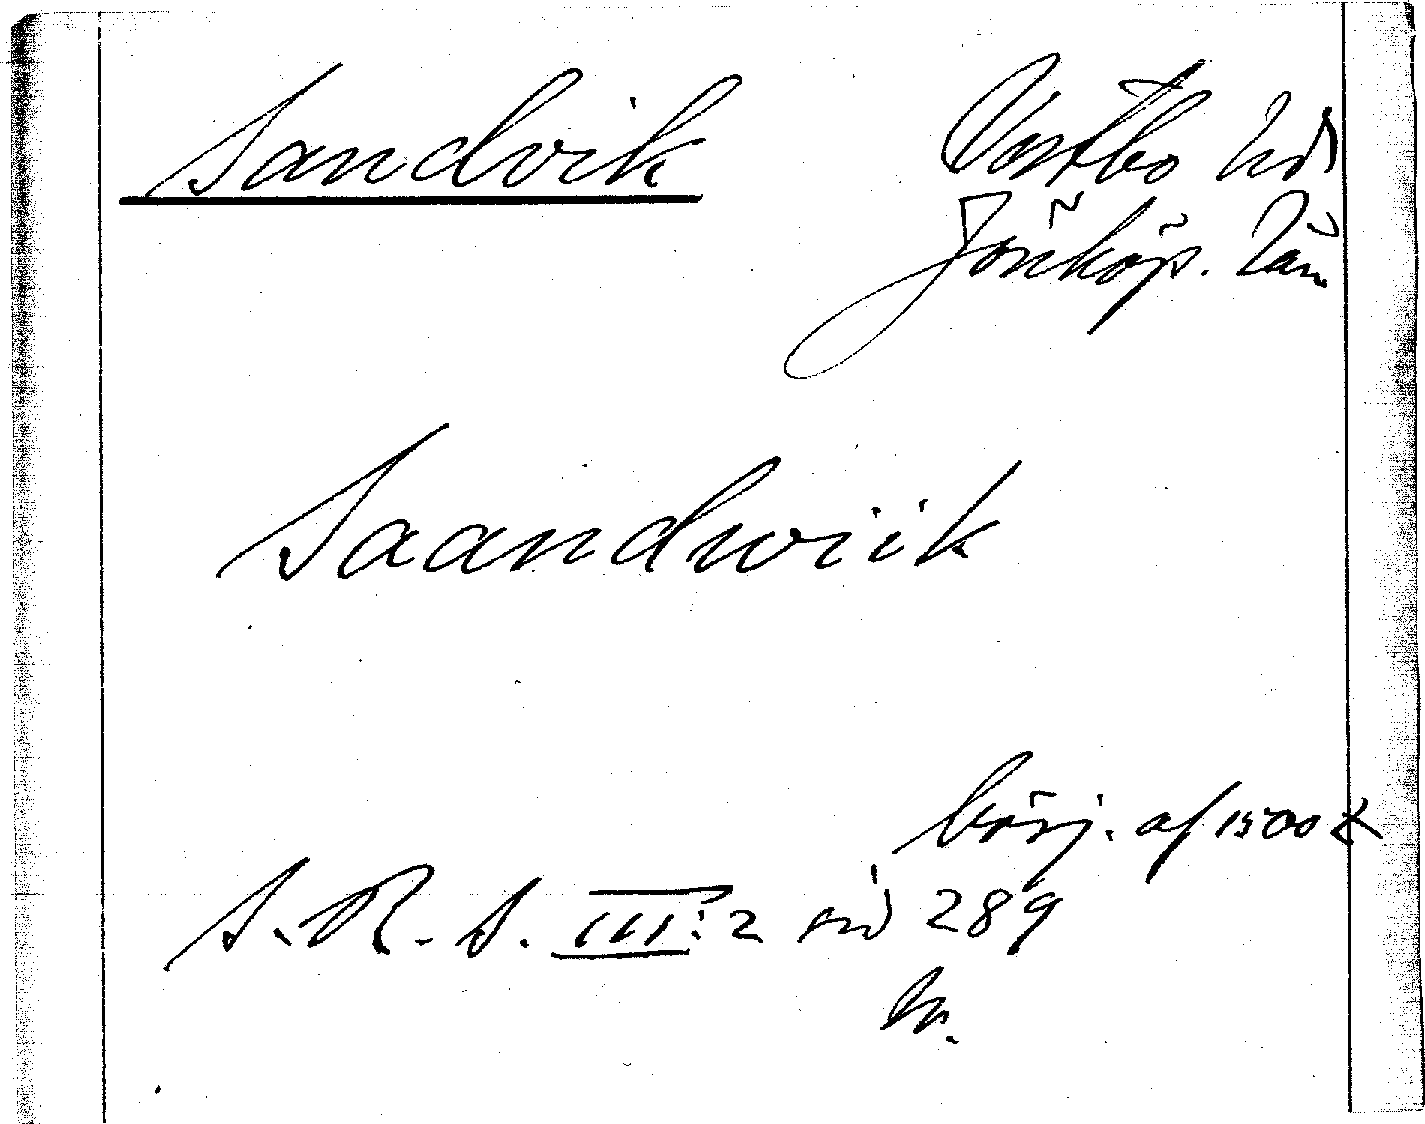 Sandvik
Västbo hd
Jönköp. län
Saandwiik
börj. af 1500 t
S. R. S. III:2 sid 289